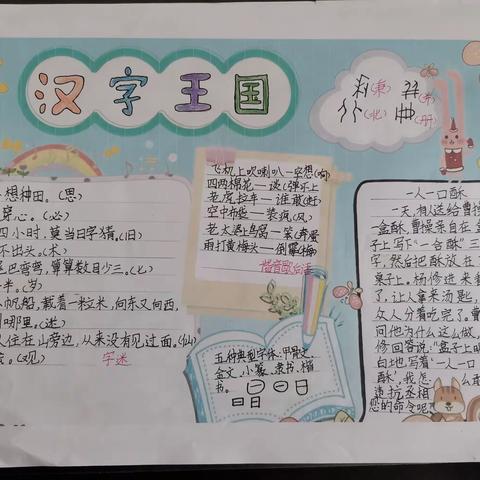 汉字王国
(秉)
(弄)
(北)
(册)
想种田。(思)
穿心。(必)
四小时,莫当日字猜。(旧)
不出头。(术)
尾巴弯弯,算算数目少三。(七)
半。(岁)
帆船,载着一粒米,向东又向西,
哪里。(迷)
人住在山旁边,从来没有见过面。(仙)
(观)
字迷
飞机上吹喇叭—空想(响)
四两棉花—谈(弹)不上
老虎拉车—谁敢(赶)
空中布袋—装疯(风)
老太婆上鸟窝—笨(奔)蛋
雨打黄梅头—倒霉(梅)
谐音歇后语
五种典型字体:甲骨文、
金文、小篆、隶书、楷
书。
日 日 日
日 日
一人一口酥
一天,有人送给曹操
一盒酥,曹操亲自在盒
子上写下“一合酥”三
字,然后把酥放在
桌子上。杨修进来看
了,让人拿来汤匙,
众人分着吃完了。曹
问他为什么这么做,
修回答说:“盒子上明
白地写着‘一人一口
酥’,我怎么敢
违抗丞相
您的命令呢?